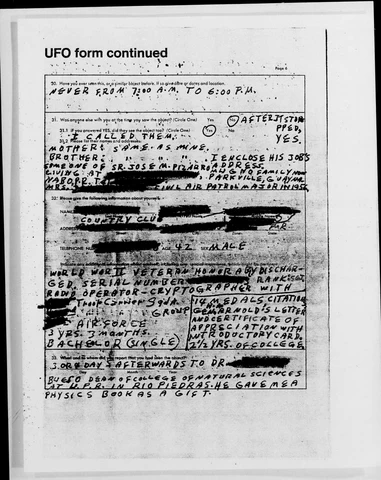 UFO form continued
Page 6
20. Have you ever seen this, or a similar object before. If so give date or dates and location.
NEVER FROM 7:00 A.M. TO 6:00 P.M.
21. Was anyone else with you at the time you saw the object? (Circle One) Yes No AFTER IT STO
PPED,
21.1 If you answered YES, did they see the object too? (Circle One) Yes No YES,
I CALLED THEM.
21.2 Please list their names and addresses:
MOTHER: SAME AS MINE,
BROTHER: " " " I ENCLOSE HIS JOB'S
SOMEONE OF SR. JOSE M. PIZARRO ADDRESS.
LIVING AT FAMILY NOW
PARKVILLE, GUAYNA
CIVIL AIR PATROL MAJOR IN 1952
22. Please give the following information about yourself:
NAME
COUNTRY CLUB
ADDRESS P.R.
TELEPHONE NUMBER AGE 42 SEX MALE
WORLD WAR II VETERAN HONORABLY DISCHAR-
GED, SERIAL NUMBER RANK: SGT.
RADIO OPERATOR - CRYPTOGRAPHER WITH
Troop Carrier Sqdn.
GROUP
AIR FORCE
3 YRS. 3 MONTHS.
BACHELOR (SINGLE)
14 MEDALS, CITATION
GEN. ARNOLD'S LETTER
AND CERTIFICATE OF
APPRECIATION WITH
INTRODUCTORY CARD.
2 1/2 YRS. OF COLLEGE
23. When and to whom did you report that you had seen the object?
3 OR 4 DAYS AFTERWARDS TO DR.
Day Month Year
BUESO DEAN OF COLLEGE OF NATURAL SCIENCES
AT U.P.R. IN RIO PIEDRAS. HE GAVE ME A
PHYSICS BOOK AS A GIFT.